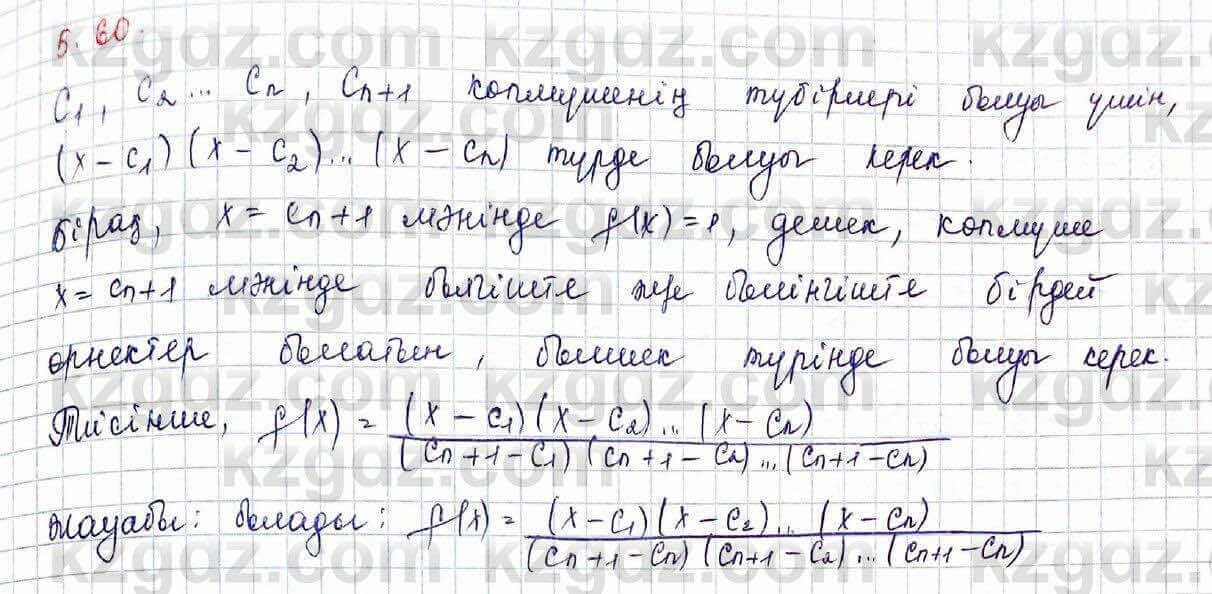 5.60.
C₁, C₂... Cₙ, Cₙ₊₁ көпмүшенің түбірлері болуы үшін,
(x-c₁)(x-c₂)...(x-cₙ) түрде болуы керек.
бірақ, x = cₙ+1 мәнінде f(x)=1, демек, көпмүше
x = cₙ+1 мәнінде бөлгіште және бөлінгіште бірдей
өрнектер болатын, бөлшек түрінде болуы керек.
Тиісінше, f(x) = (x-c₁)(x-c₂)...(x-cₙ) / (cₙ+1-c₁)(cₙ+1-c₂)...(cₙ+1-cₙ)
жауабы: болады: f(x) = (x-c₁)(x-c₂)...(x-cₙ) / (cₙ+1-cₙ)(cₙ+1-c₂)...(cₙ+1-cₙ)
kzgdz.com